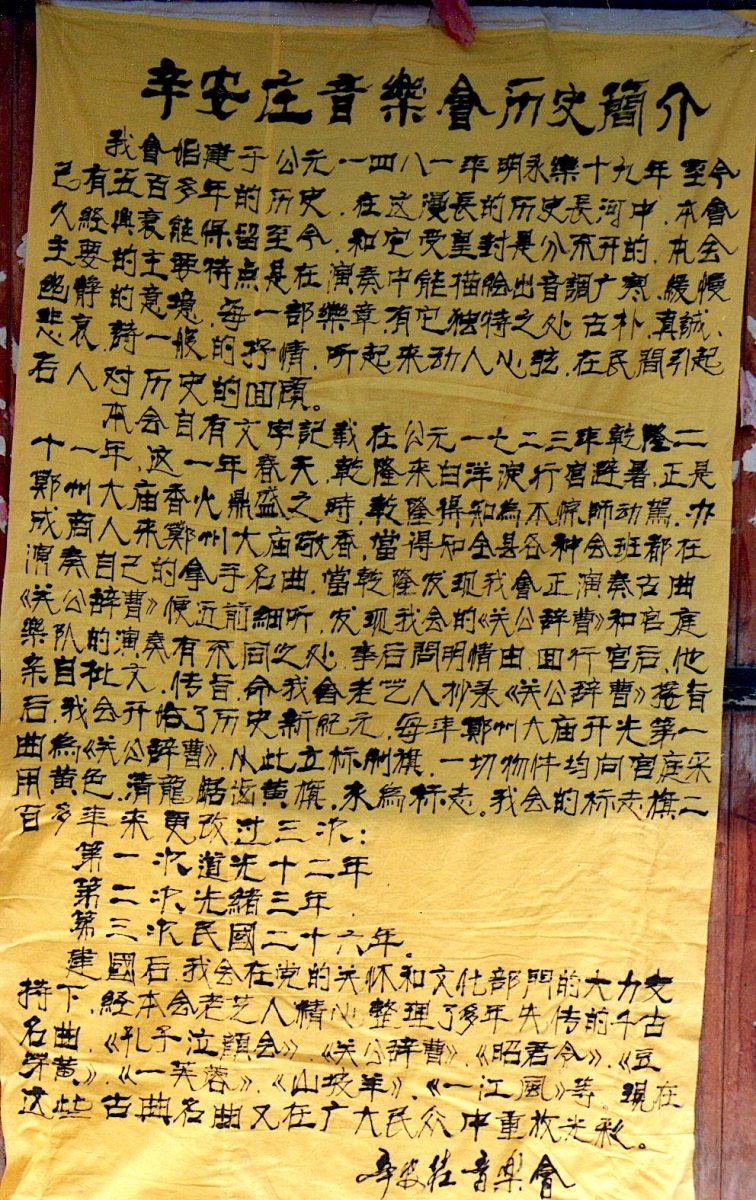 辛安庄音樂會历史簡介
我會始建于公元一四八一年明永樂十九年至今
己有五百多年的历史.在这漫長的历史長河中.本會
久經興衰能保留至今.和它受皇封是分不开的.本会
主要的主要特点是在演奏中能描繪出音調广寒.緩慢
幽靜的意境.每一部樂章.有它独特之处古朴.真誠.
悲哀.詩一般的抒情.听起来动人心弦.在民間引起
后人对历史的回顧。
本会自有文字記载在公元一七二三年乾隆二
十一年.这一年春天.乾隆来白洋淀行宫避暑.正是
鄭州大庙香火鼎盛之時.乾隆得知為不惊師动駕.办
成商人来鄭州大庙敬香.當得知全县各种会班都在
演奏自己的拿手名曲.當乾隆发现我會正演奏古曲
《关公辞曹》便近前細听.发现我会的《关公辞曹》和宫庭
樂队的演奏有不同之处.事后問明情由.回行宫后.他
亲自批文.传旨.命我會老艺人抄录《关公辞曹》接旨
后.我会开始了历史新紀元.每年鄭州大庙开光第一
曲為《关公辞曹》.从此立标制旗.一切物件均向宫庭采
用黄色.清龍鋸齿黄旗.永為标志。我会的标志旗二
百多年来更改过三次:
第一次道光十二年
第二次光緒三年.
第三次民國二十六年.
建國后.我会在党的关怀和文化部門的大力支
持下.經本会老芝人精心整理了多年失传的千古
名曲.《孔子泣顏会》.《关公辞曹》.《昭君令》.《豆
芽黄》.《一芙蓉》.《山坡羊》.《一江風》等。現在
这些古典名曲又在广大民众中重放光彩。
辛安莊音樂會